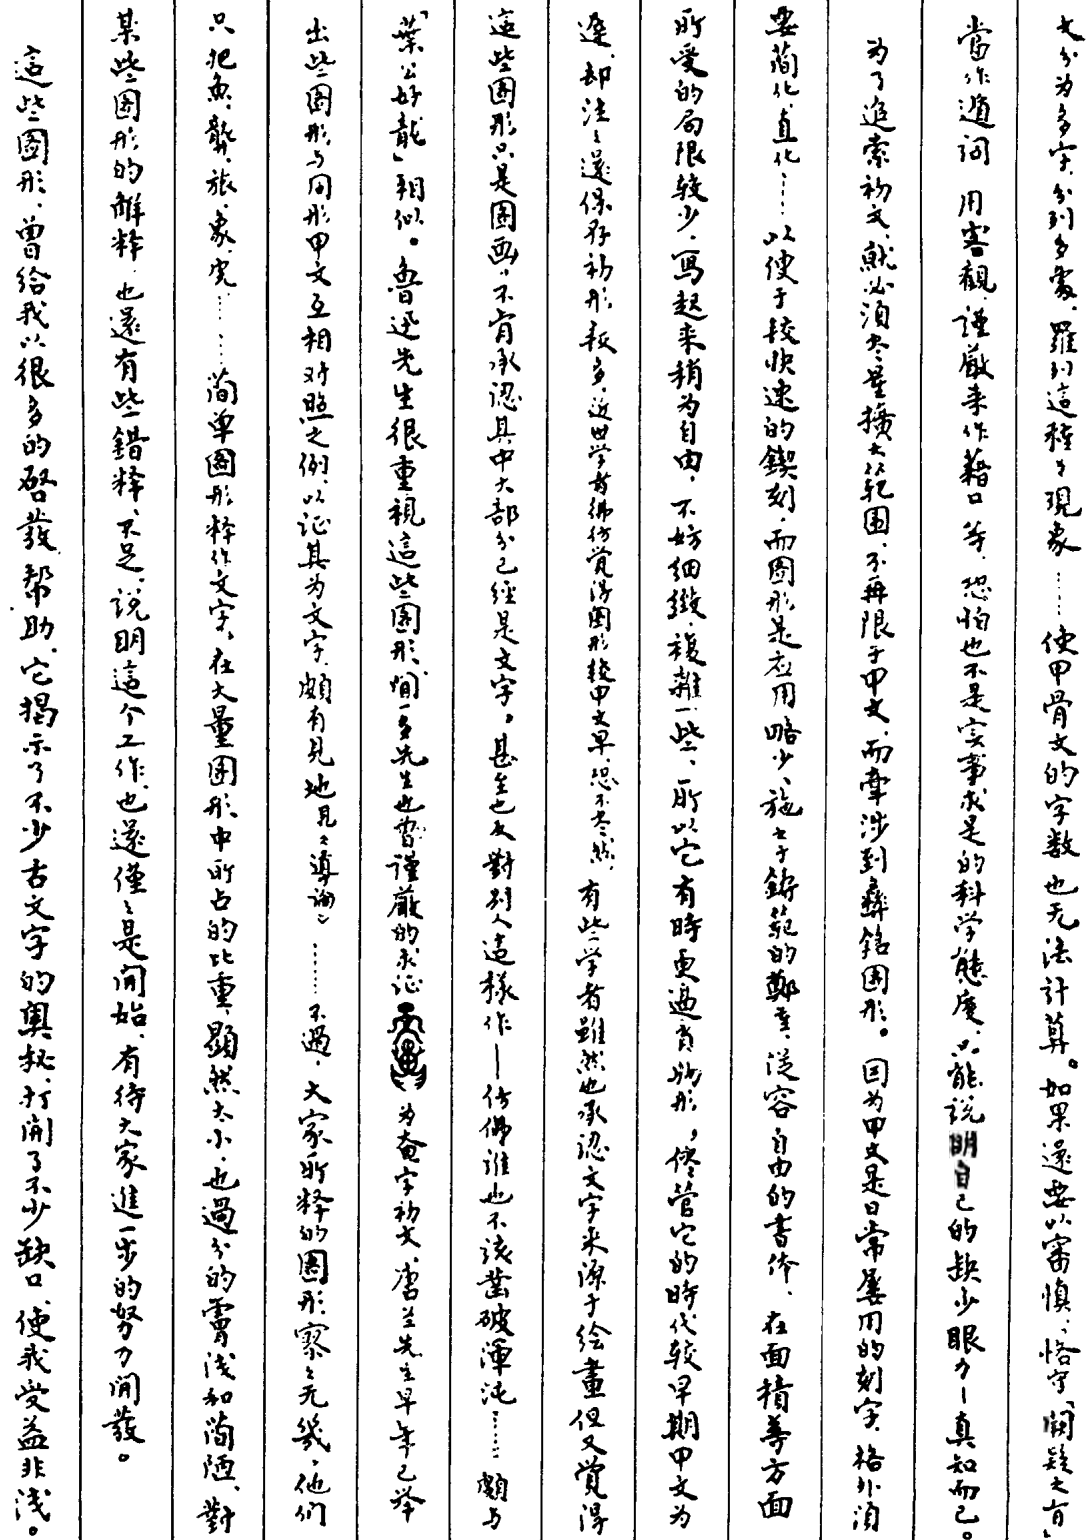 文分为多字、分列多處、羅列這種種現象……使甲骨文的字数也无法計算。如果還要以審慎、恪守「闕疑之旨」
當作遁词 用客觀、謹嚴来作藉口等、恐怕也不是实事求是的科学態度、只能说明自己的缺少眼力—真知而已。
为了追索初文、就必须尽量擴大範围、不再限于甲文、而牽涉到彝銘图形。因为甲文是日常屡用的刻字、格外须
要简化、直化……以便于较快速的鍥刻、而图形是应用略少、施之于鋳范的鄭重、從容自由的書体、在面積等方面
所受的局限较少、寫起来稍为自由、不妨细緻、複雜一些、所以它有時更逼肖物形，儘管它的時代较早期甲文为
遲、却往往還保存初形較多、近世学者彿彷覺得图形较甲文早、恐不尽然、有些学者雖然也承認文字来源于绘畫但又覺得
這些图形只是图画、不肯承認其中大部分已經是文字。甚至也反對别人這樣作—彷彿谁也不该凿破渾沌……頗与
「葉公好龍」相似。魯迅先生很重視這些图形、聞一多先生也曾謹嚴的求证 为奄字初文、唐兰先生早年已举
出些图形与同形甲文互相对照之例、以证其为文字、頗有見地 見《導論》……不過、大家所释的图形寥寥无幾、他们
只把魚、龏、旅、象、……简单图形释作文字、在大量图形中所占的比重、顯然太小、也過分的膚浅和简陋、對
某些图形的解释、也還有些錯释、不足、说明這个工作、也還僅僅是開始、有待大家進一步的努力開發。
這些图形、曾给我以很多的啓發、幫助、它揭示了不少古文字的奥秘、打開了不少缺口、使我受益非浅。